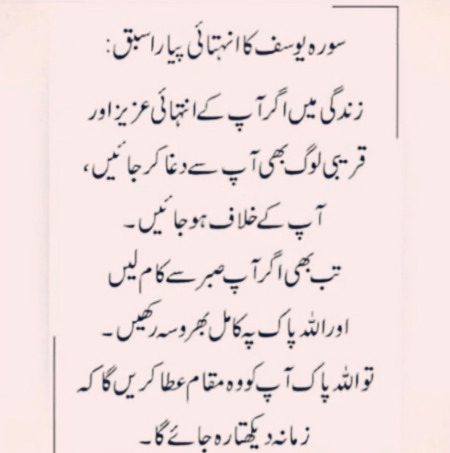 سورہ یوسف کا انتہائی پیارا سبق:
زندگی میں اگر آپ کے انتہائی عزیز اور
قریبی لوگ بھی آپ سے دغا کر جائیں،
آپ کے خلاف ہو جائیں۔
تب بھی اگر آپ صبر سے کام لیں
اور اللہ پاک پہ کامل بھروسہ رکھیں۔
تو اللہ پاک آپ کو وہ مقام عطا کریں گا کہ
زمانہ دیکھتا رہ جائے گا۔